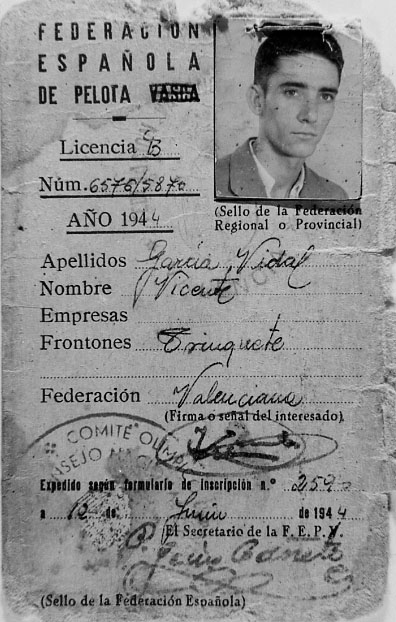 FEDERACIÓN
ESPAÑOLA
DE PELOTA VASCA
Licencia B
Núm. 6576/5870
AÑO 1944
(Sello de la Federación
Regional o Provincial)
Apellidos García Vidal
Nombre Vicente
Empresas
Frontones Trinquete
Federación Valenciana
(Firma o señal del interesado)
COMITÉ OLÍM
NSEJO NAC
Expedido según formulario de inscripción n.º 259
a 12 de Junio de 1944
El Secretario de la F. E. P. V.
(Sello de la Federación Española)